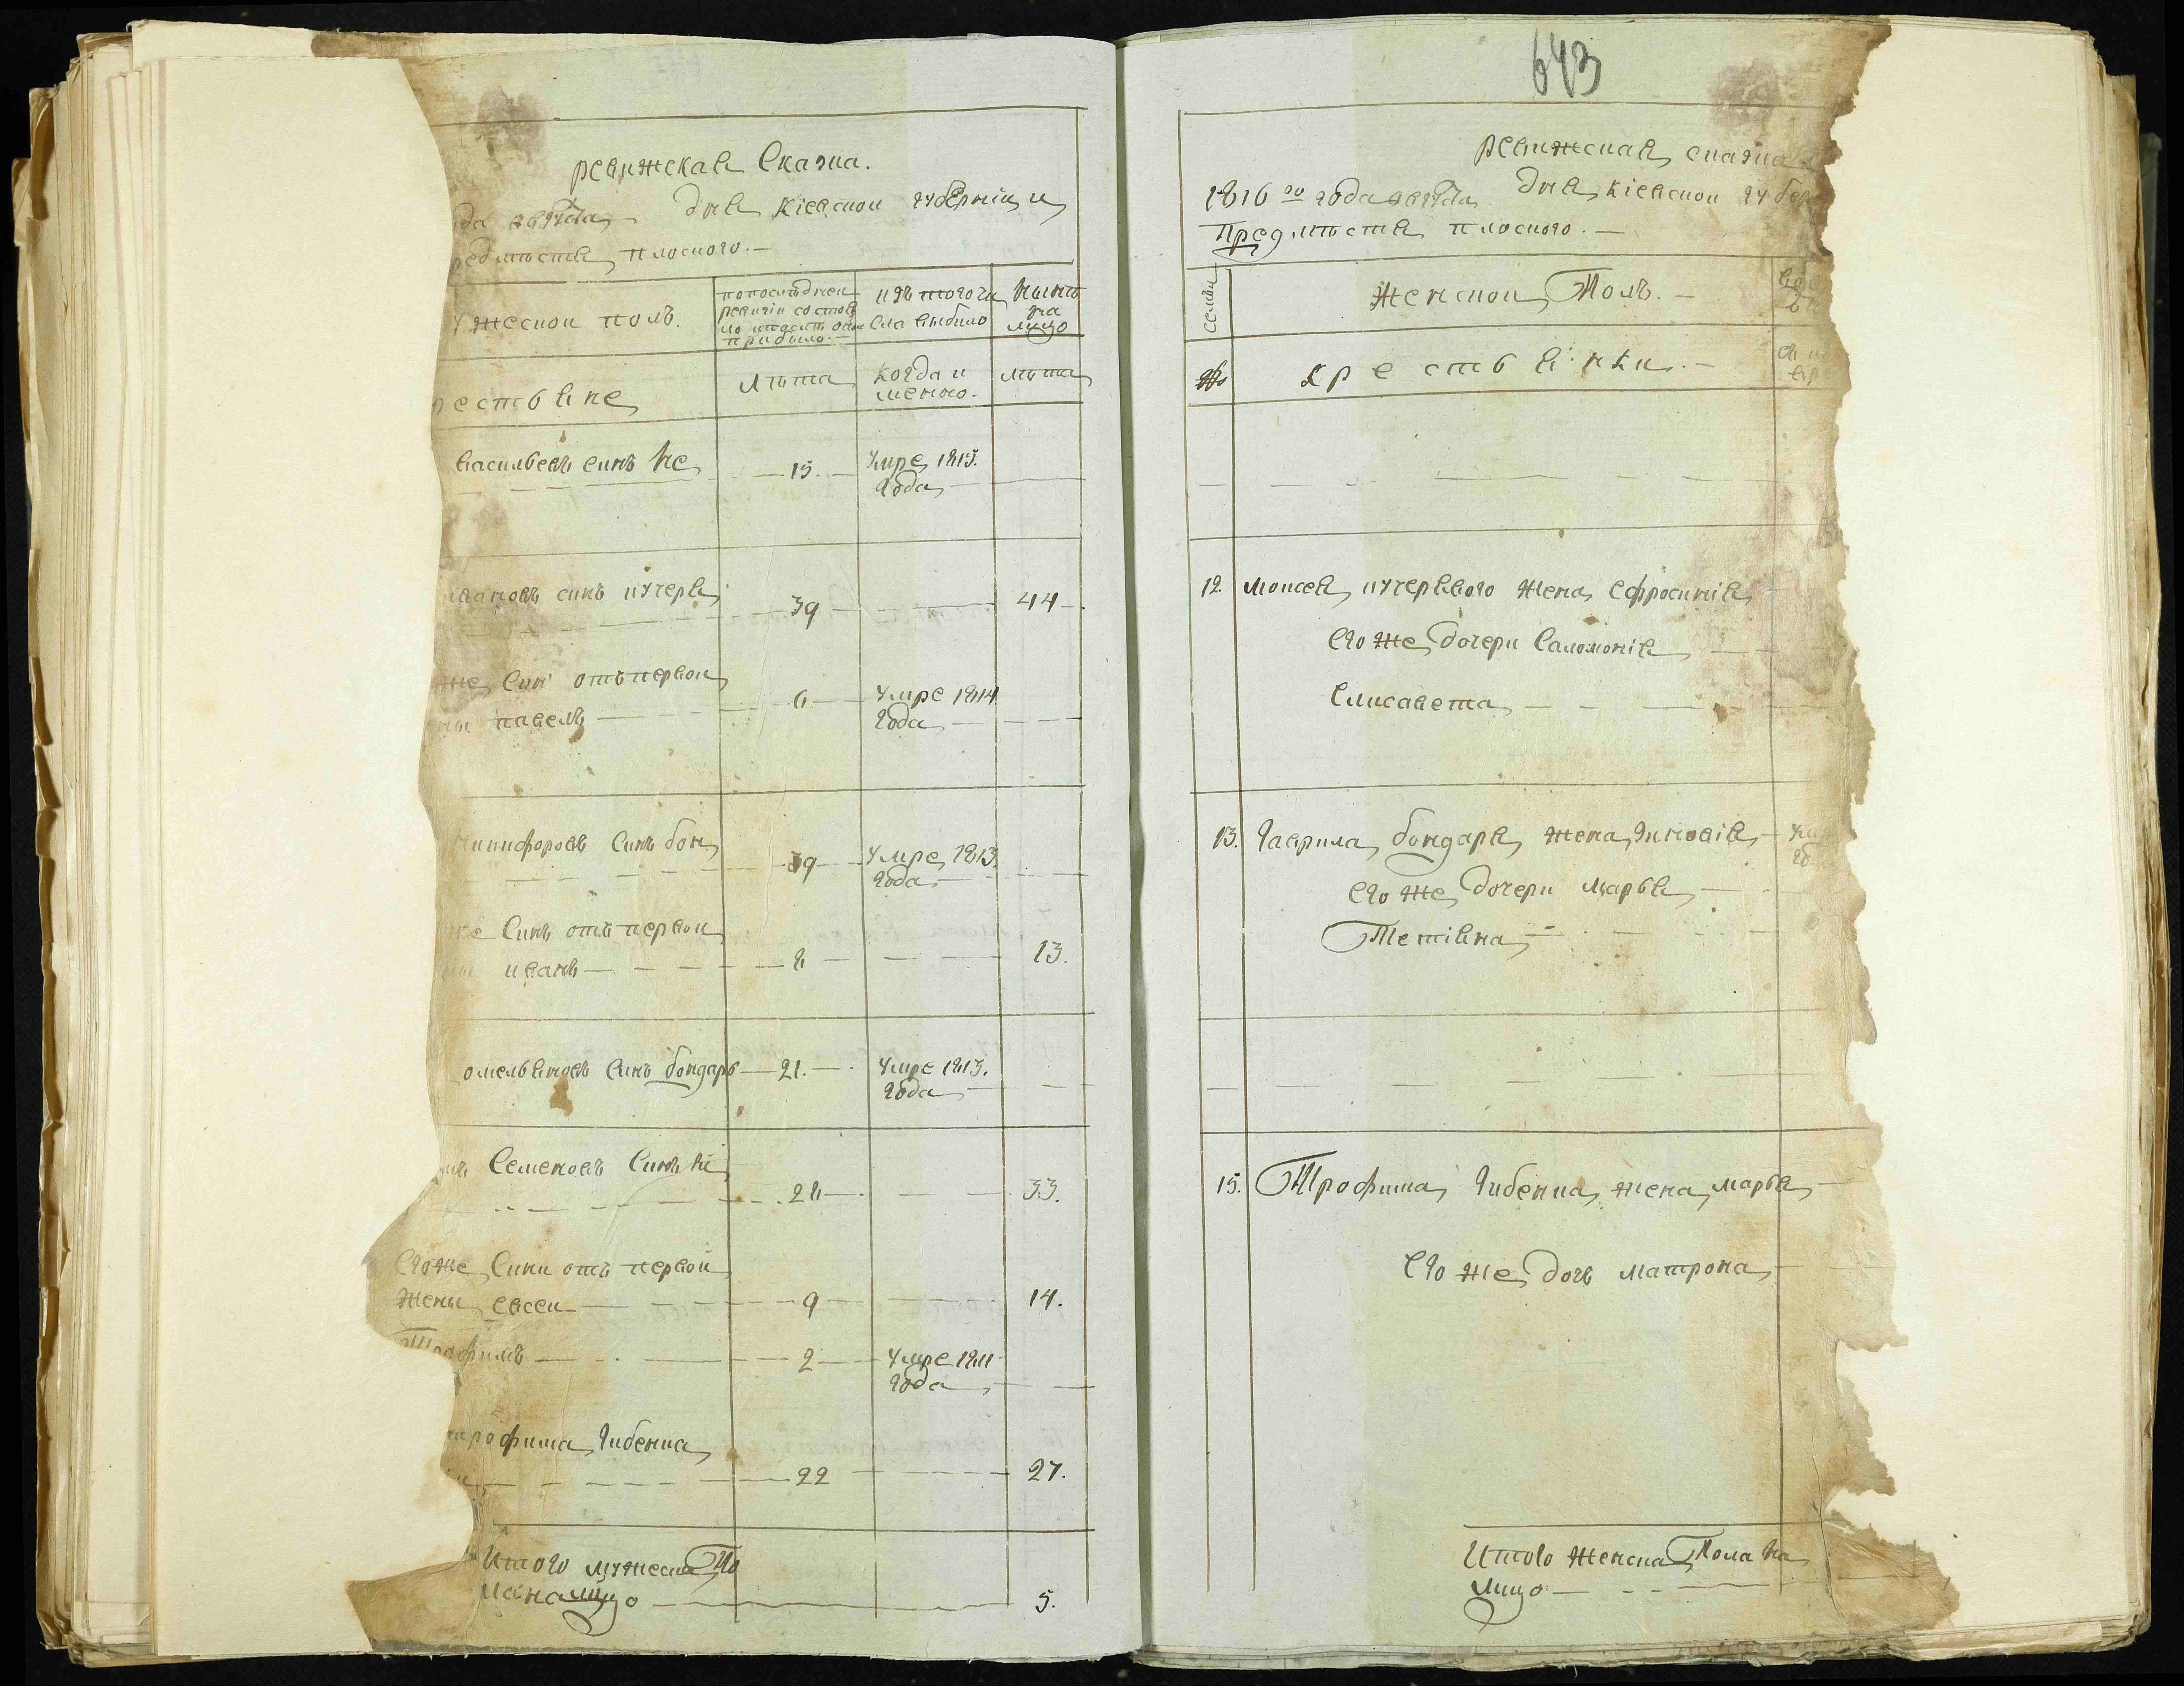 ревижская сказка.
да августа дня Кіевской губерніи и
редмѣстя плоского.
ужеской полъ.
попослѣдней
ревизіи состоя
прибыло.
изъ того чи
сла выбыло
нынѣ
на
лицо
рестьяне
лѣта
когда и
менно.
лѣта
васильевъ синъ не
15.
умре 1815.
года
вановъ синъ кучеря
39
44
же синъ отъ первои
ны павелъ
6
умре 1814
года
никифоровъ синъ бон
39
умре 1813.
года
же синъ отъ первои
иванъ
8
13.
омельяновъ синъ бондарь
21.
умре 1813.
года
семеновъ синъ
28
33.
его же сини отъ первои
жены евсеи
9
14.
Трофимъ
2
умре 1811
года
трофима зибенка
22
27.
Итого мужеска По
ла на лицо
5.
643
ревижская сказка
1816го года августа дня кіевской губер
Предмѣстя плоского.
семьи
Женской Полъ.
№
крестьянки.
12. Моисея кучерявого жена ефросинія
его же дочери Саломонія
Елисавета
13. Гаврила бондаря жена Зиновія
его же дочери марья
Тетіяна
15. Трофима зибенка жена марья
его же дочь матрона
Итого женска Пола на
лицо